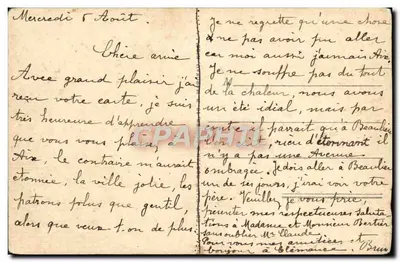 Mercredi 5 Août.
Chère amie
Avec grand plaisir j'ai
reçu votre carte, je suis
très heureuse d'apprendre
que vous vous plaisez
Aix, le contraire m'aurait
étonnée, la ville jolie, les
patrons plus que gentil,
alors que veux t.on de plus.
Je ne regrette qu'une chose
ne pas avoir pu aller
car moi aussi j'aimais Aix,
Je ne souffre pas du tout
de la chaleur, nous avons
un été idial, mais par
contre il parrait qu'à Beaulieu
rien d'étonnant il
n'y a pas une Avenue
ombragée. Je dois aller à Beaulieu
un de ses jours, j'irai voir votre
père. Veuillez je vous prie,
présenter mes respectueuses Saluta
tions à Madame et Monsieur Bertier
sans oublier Mr Claude.
Pour vous mes amitiées et
bonjour à Clémance